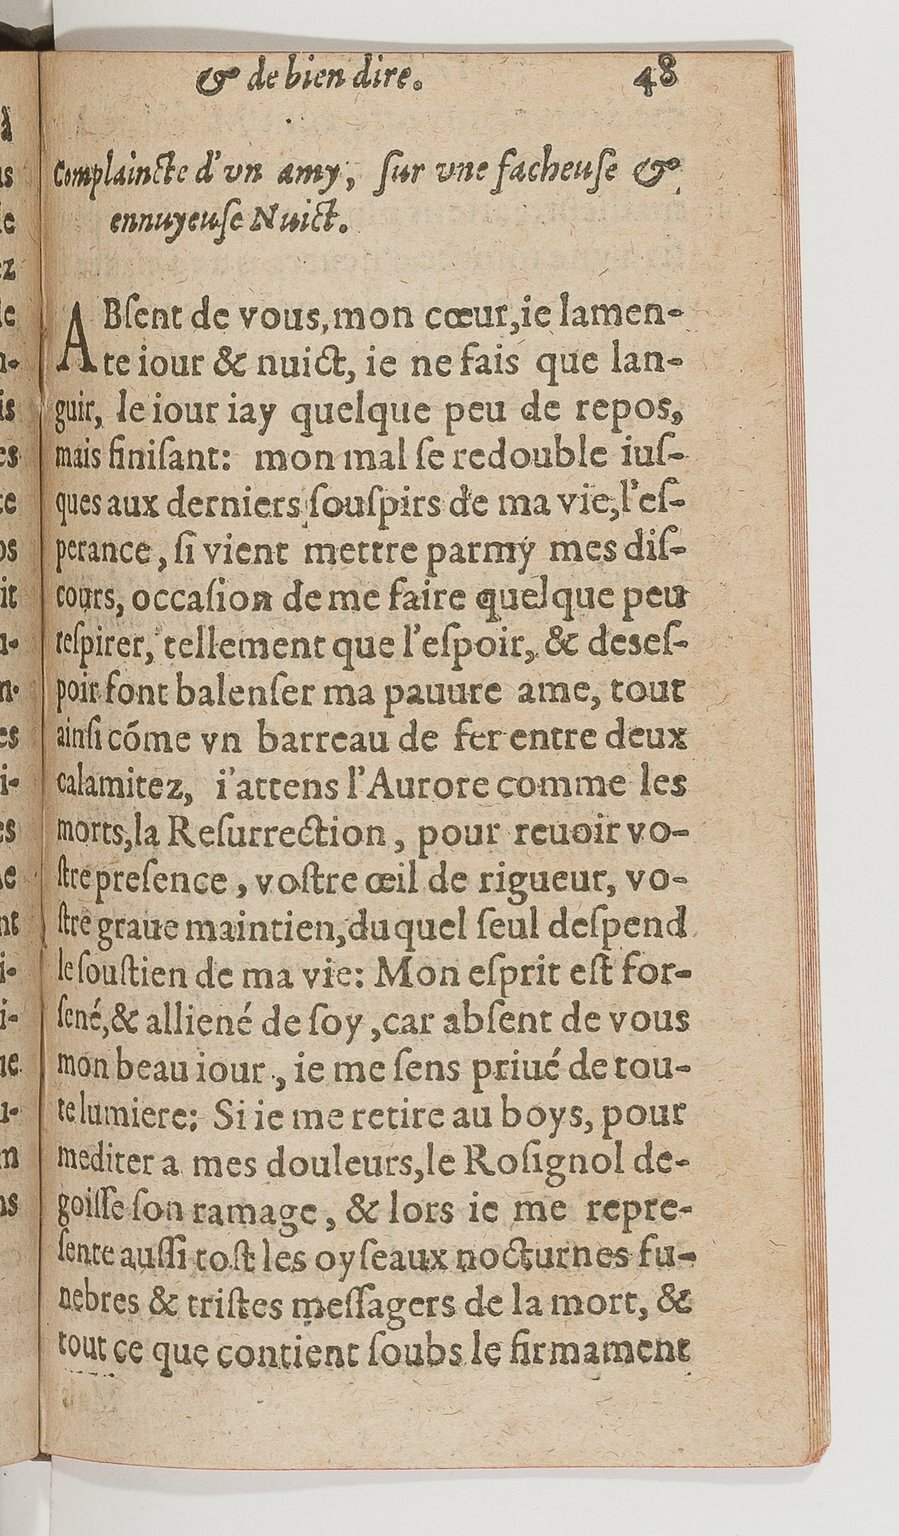 & de bien dire. 48
Complaincte d'vn amy, ſur vne facheuſe &
ennuyeuſe Nuict.
ABſent de vous, mon cœur, ie lamen-
te iour & nuict, ie ne fais que lan-
guir, le iour iay quelque peu de repos,
mais finiſant: mon mal ſe redouble iuſ-
ques aux derniers ſouſpirs de ma vie, l'eſ-
perance, ſi vient mettre parmy mes diſ-
cours, occaſion de me faire quelque peu
reſpirer, tellement que l'eſpoir, & deseſ-
poir font balenſer ma pauure ame, tout
ainſi cõme vn barreau de fer entre deux
calamitez, i'attens l'Aurore comme les
morts, la Reſurrection, pour reuoir vo-
ſtre preſence, voſtre œil de rigueur, vo-
ſtre graue maintien, duquel ſeul deſpend
le ſouſtien de ma vie: Mon eſprit eſt for-
ſené, & alliené de ſoy, car abſent de vous
mon beau iour, ie me ſens priué de tou-
te lumiere: Si ie me retire au boys, pour
mediter a mes douleurs, le Roſignol de-
goiſſe ſon ramage, & lors ie me repre-
ſente auſſi toſt les oyſeaux nocturnes fu-
nebres & triſtes meſſagers de la mort, &
tout ce que contient ſoubs le firmament